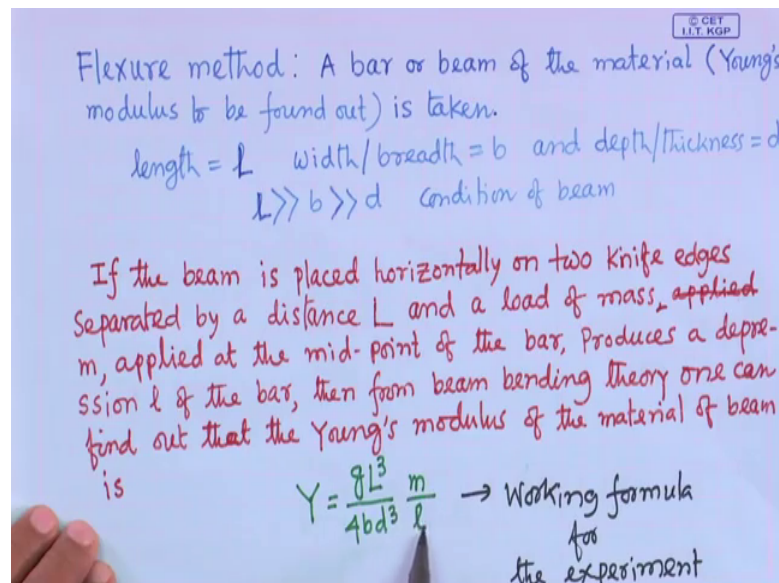 © CET
I.I.T. KGP
Flexure method: A bar or beam of the material (Young's
modulus to be found out) is taken.
length = L width/breadth = b and depth/thickness = d
L >> b >> d Condition of beam
If the beam is placed horizontally on two knife edges
separated by a distance L and a load of mass, applied
m, applied at the mid-point of the bar, produces a depre-
ssion l of the bar, then from beam bending theory one can
find out that the Young's modulus of the material of beam
is
Y = gL³/4bd³ m/l → Working formula
for
the experiment